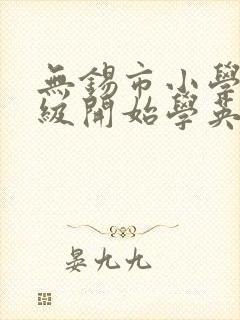 無錫市小學
級開始學英
晏九九